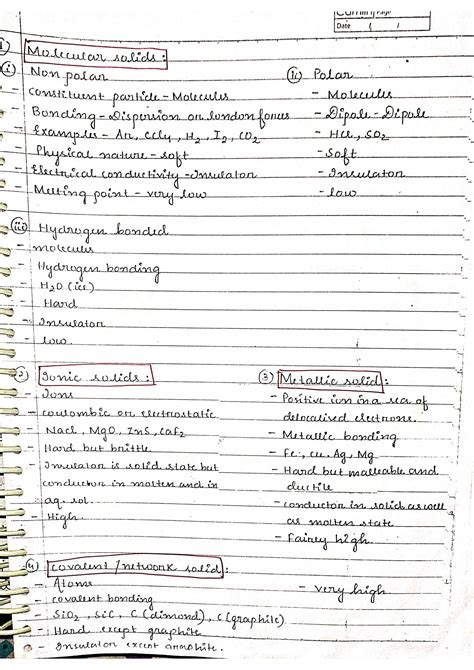 Page
Date
1) Molecular solids :
(i) Non polar
- Constituent particle - Molecules
- Bonding - Dispersion or London forces
- Examples - Ar, CCl4, H2, I2, CO2
- Physical nature - soft
- Electrical conductivity - Insulator
- Melting point - very low
(ii) Polar
- Molecules
- Dipole - Dipole
- HCl, SO2
- Soft
- Insulator
- low
(iii) Hydrogen bonded
- molecules
- Hydrogen bonding
- H2O (ice)
- Hard
- Insulator
- low.
2) Ionic solids :
- Ions
- coulombic or electrostatic
- NaCl, MgO, ZnS, CaF2
- Hard but brittle
- Insulator is solid state but
conductor in molten and in
aq. sol.
- High
3) Metallic solid :
- Positive ion in a sea of
delocalised electrons.
- Metallic bonding
- Fe, Cu, Ag, Mg
- Hard but malleable and
ductile
- conductor in solid as well
as molten state
- Fairly high
4) Covalent / network solid :
- Atoms
- covalent bonding
- SiO2, SiC, C (dimond), C (graphite)
- Hard except graphite
- Insulator except graphite.
- very high